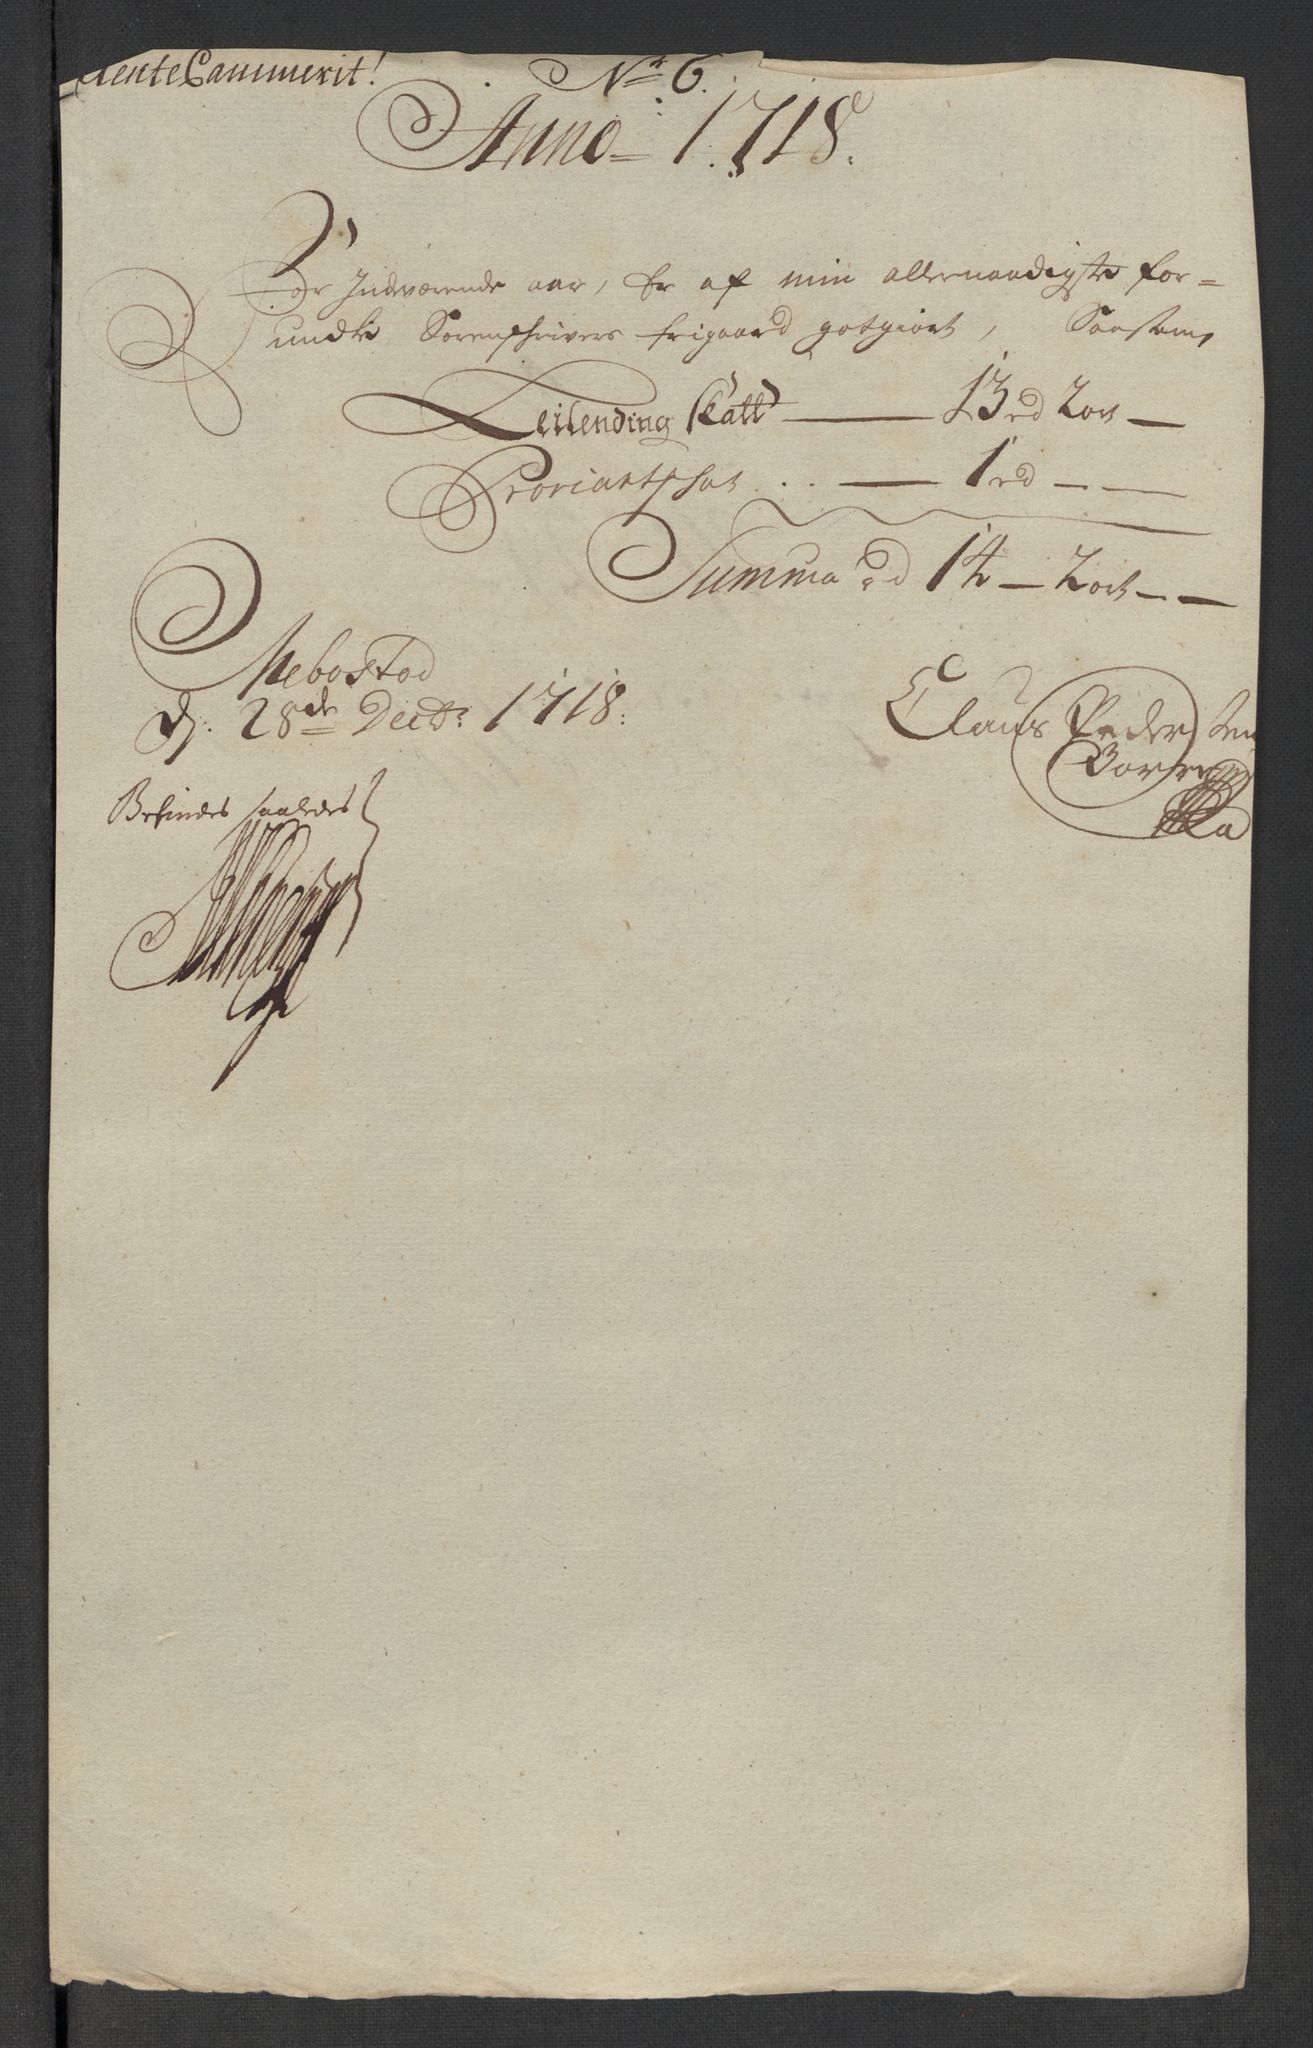 RenteCammerit!
No 6.
Anno 1718.
For Indeværende aar, Er af min allernaadigste for=
undte Sorenschrivers frigaard gotgiort, Saasom,
Leilending skatt — 13 rd 2 ort —
Proviantskat . . — 1 rd — —
Summa rd 14 — 2 ort — —
Mebostad
dj: 28de Decbr 1718:
Claus Pedersen
Borre
Befindes saaledes